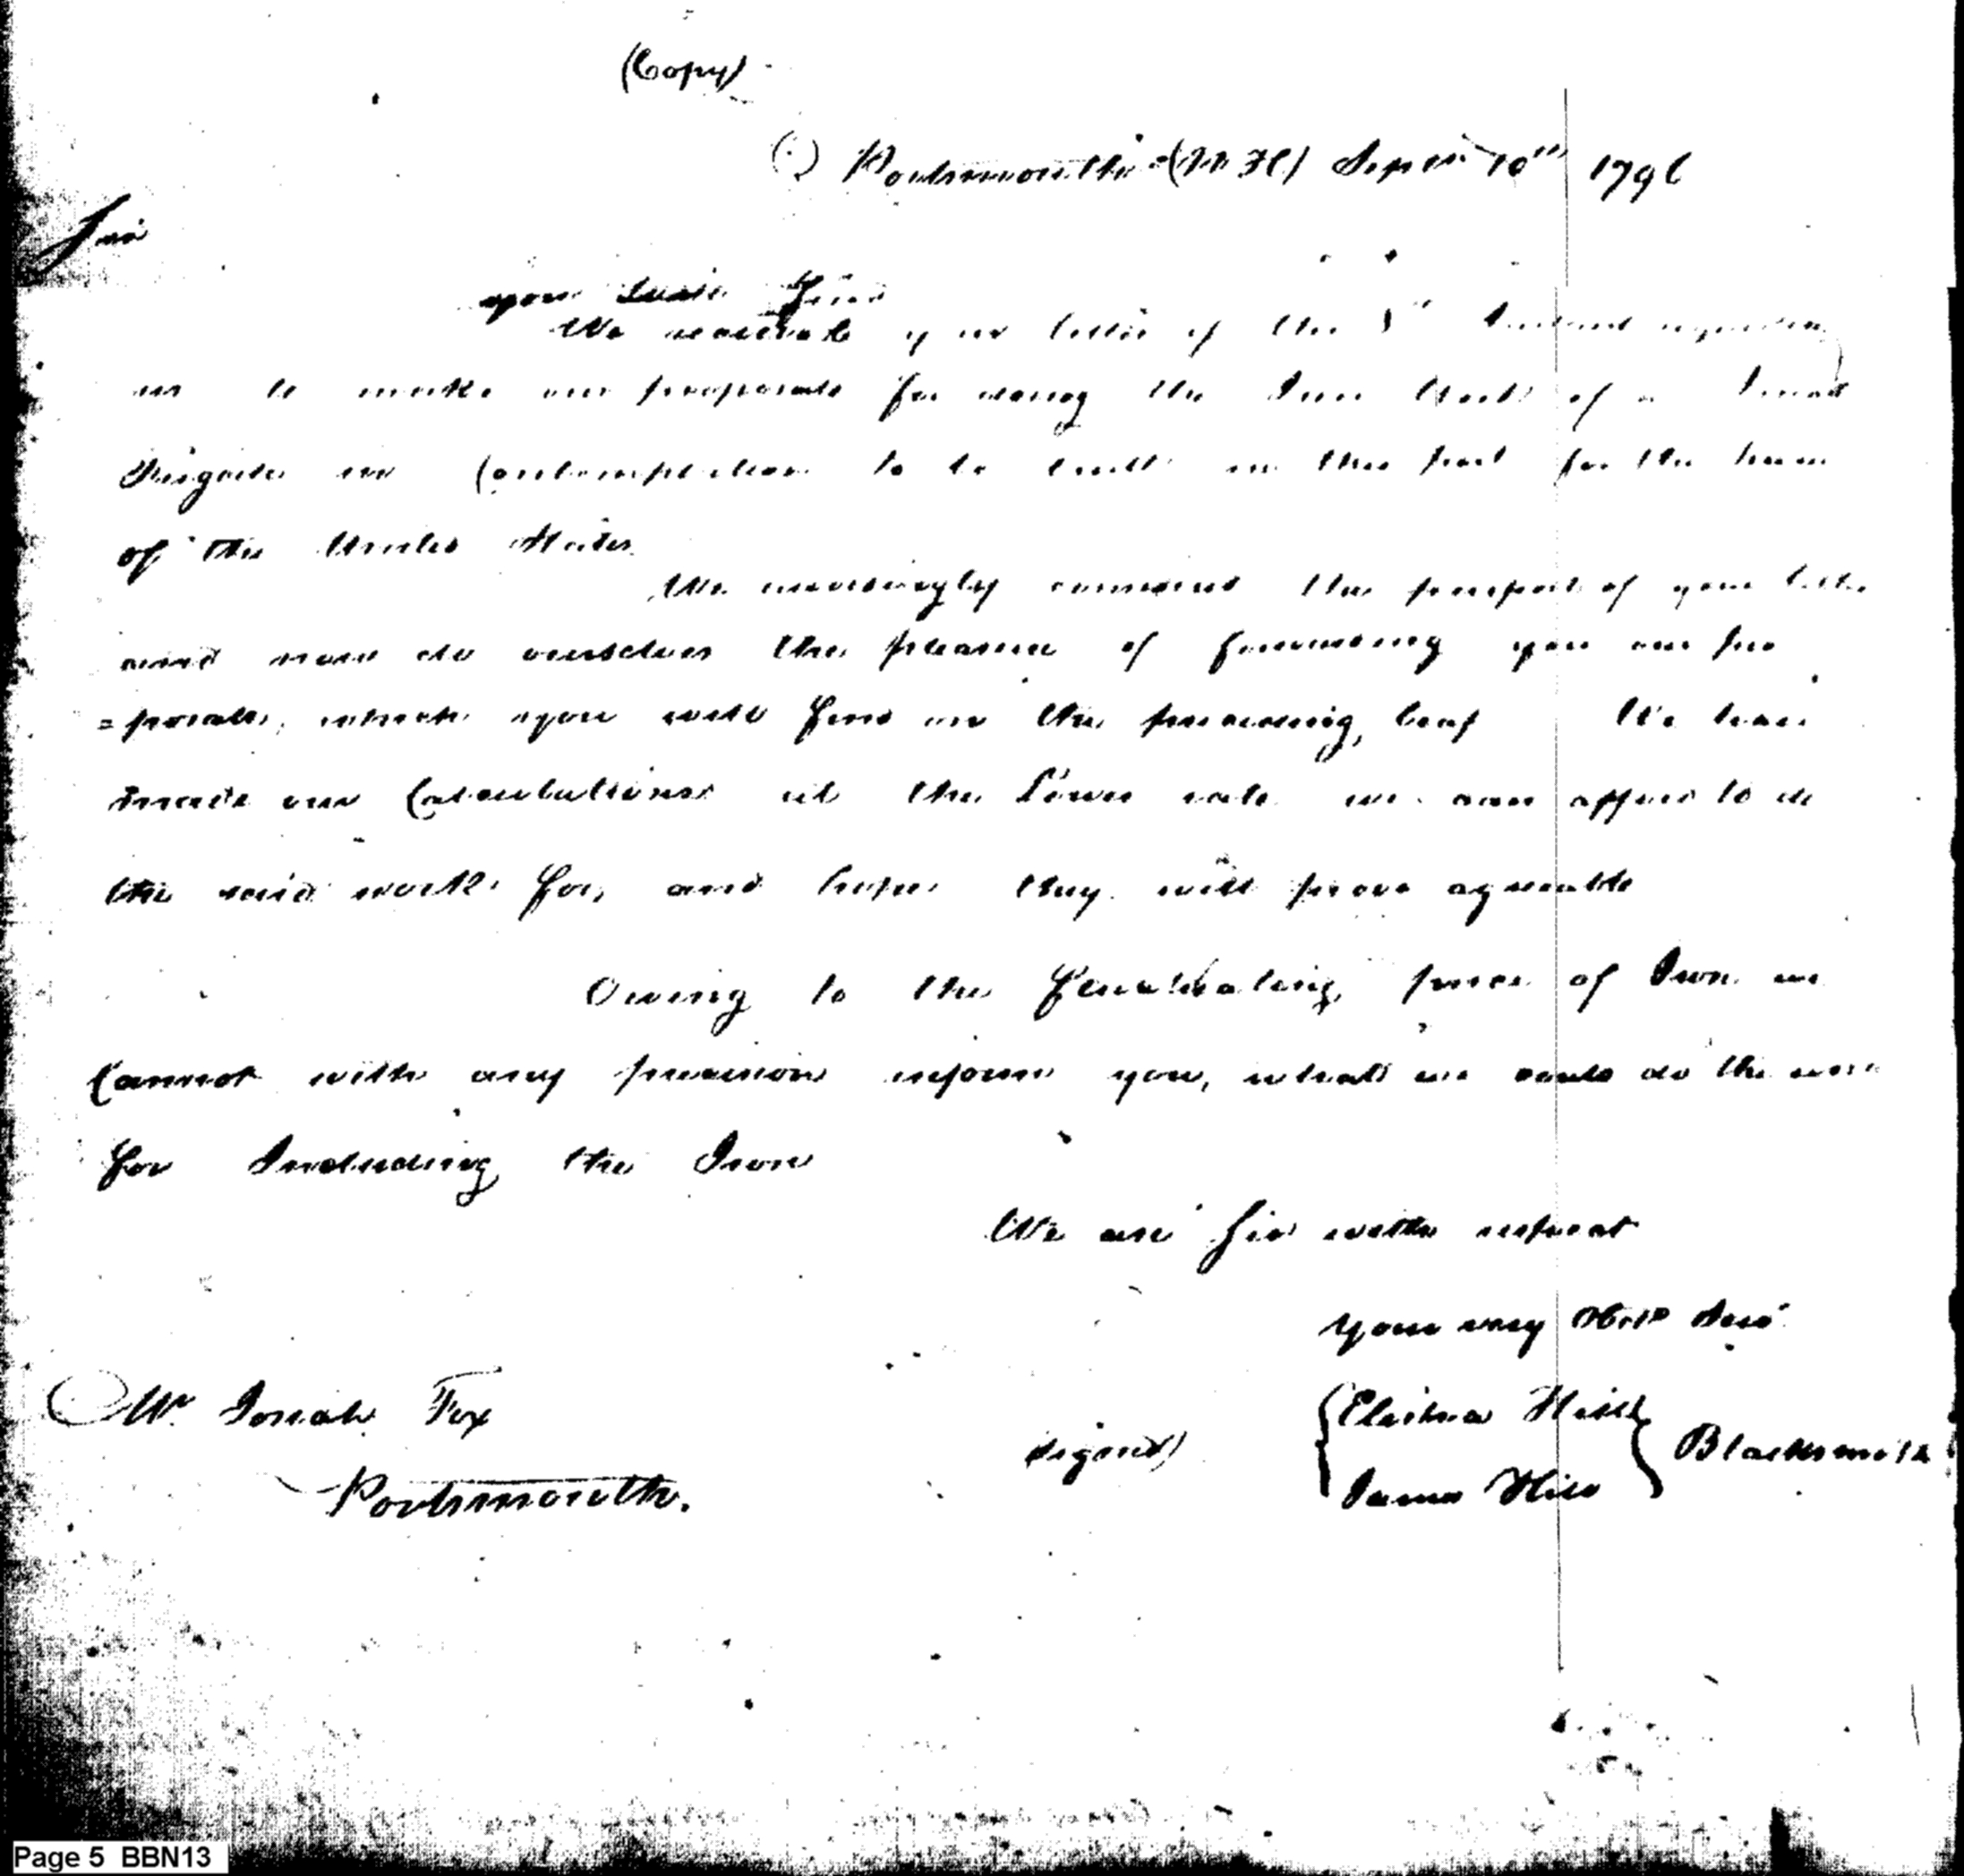 (Copy)
Portsmouth (N H) Sepr 10th 1796
Sir
We received your letter of the Instant requesting
us to make our proposals for doing the Iron Work of a Small
Frigate in Contemplation to be built in this port for the
of the United States
We accordingly the purport of your letter
and now do ourselves the pleasure of forwarding you our pro
=posals, which you will find on the preceeding leaf We have
made our Calculations at the Lowes rate we can afford to do
the said work for, and hope they will prove agreeable
Owing to the price of Iron we
Cannot with any precision inform you, what we could do the work
for Including the Iron
We are Sir with respect
your very Serv
Mr Josiah Fox
signed) {Elisha Hill
James Hill} Blacksmiths
Portsmouth.
Page 5 BBN13